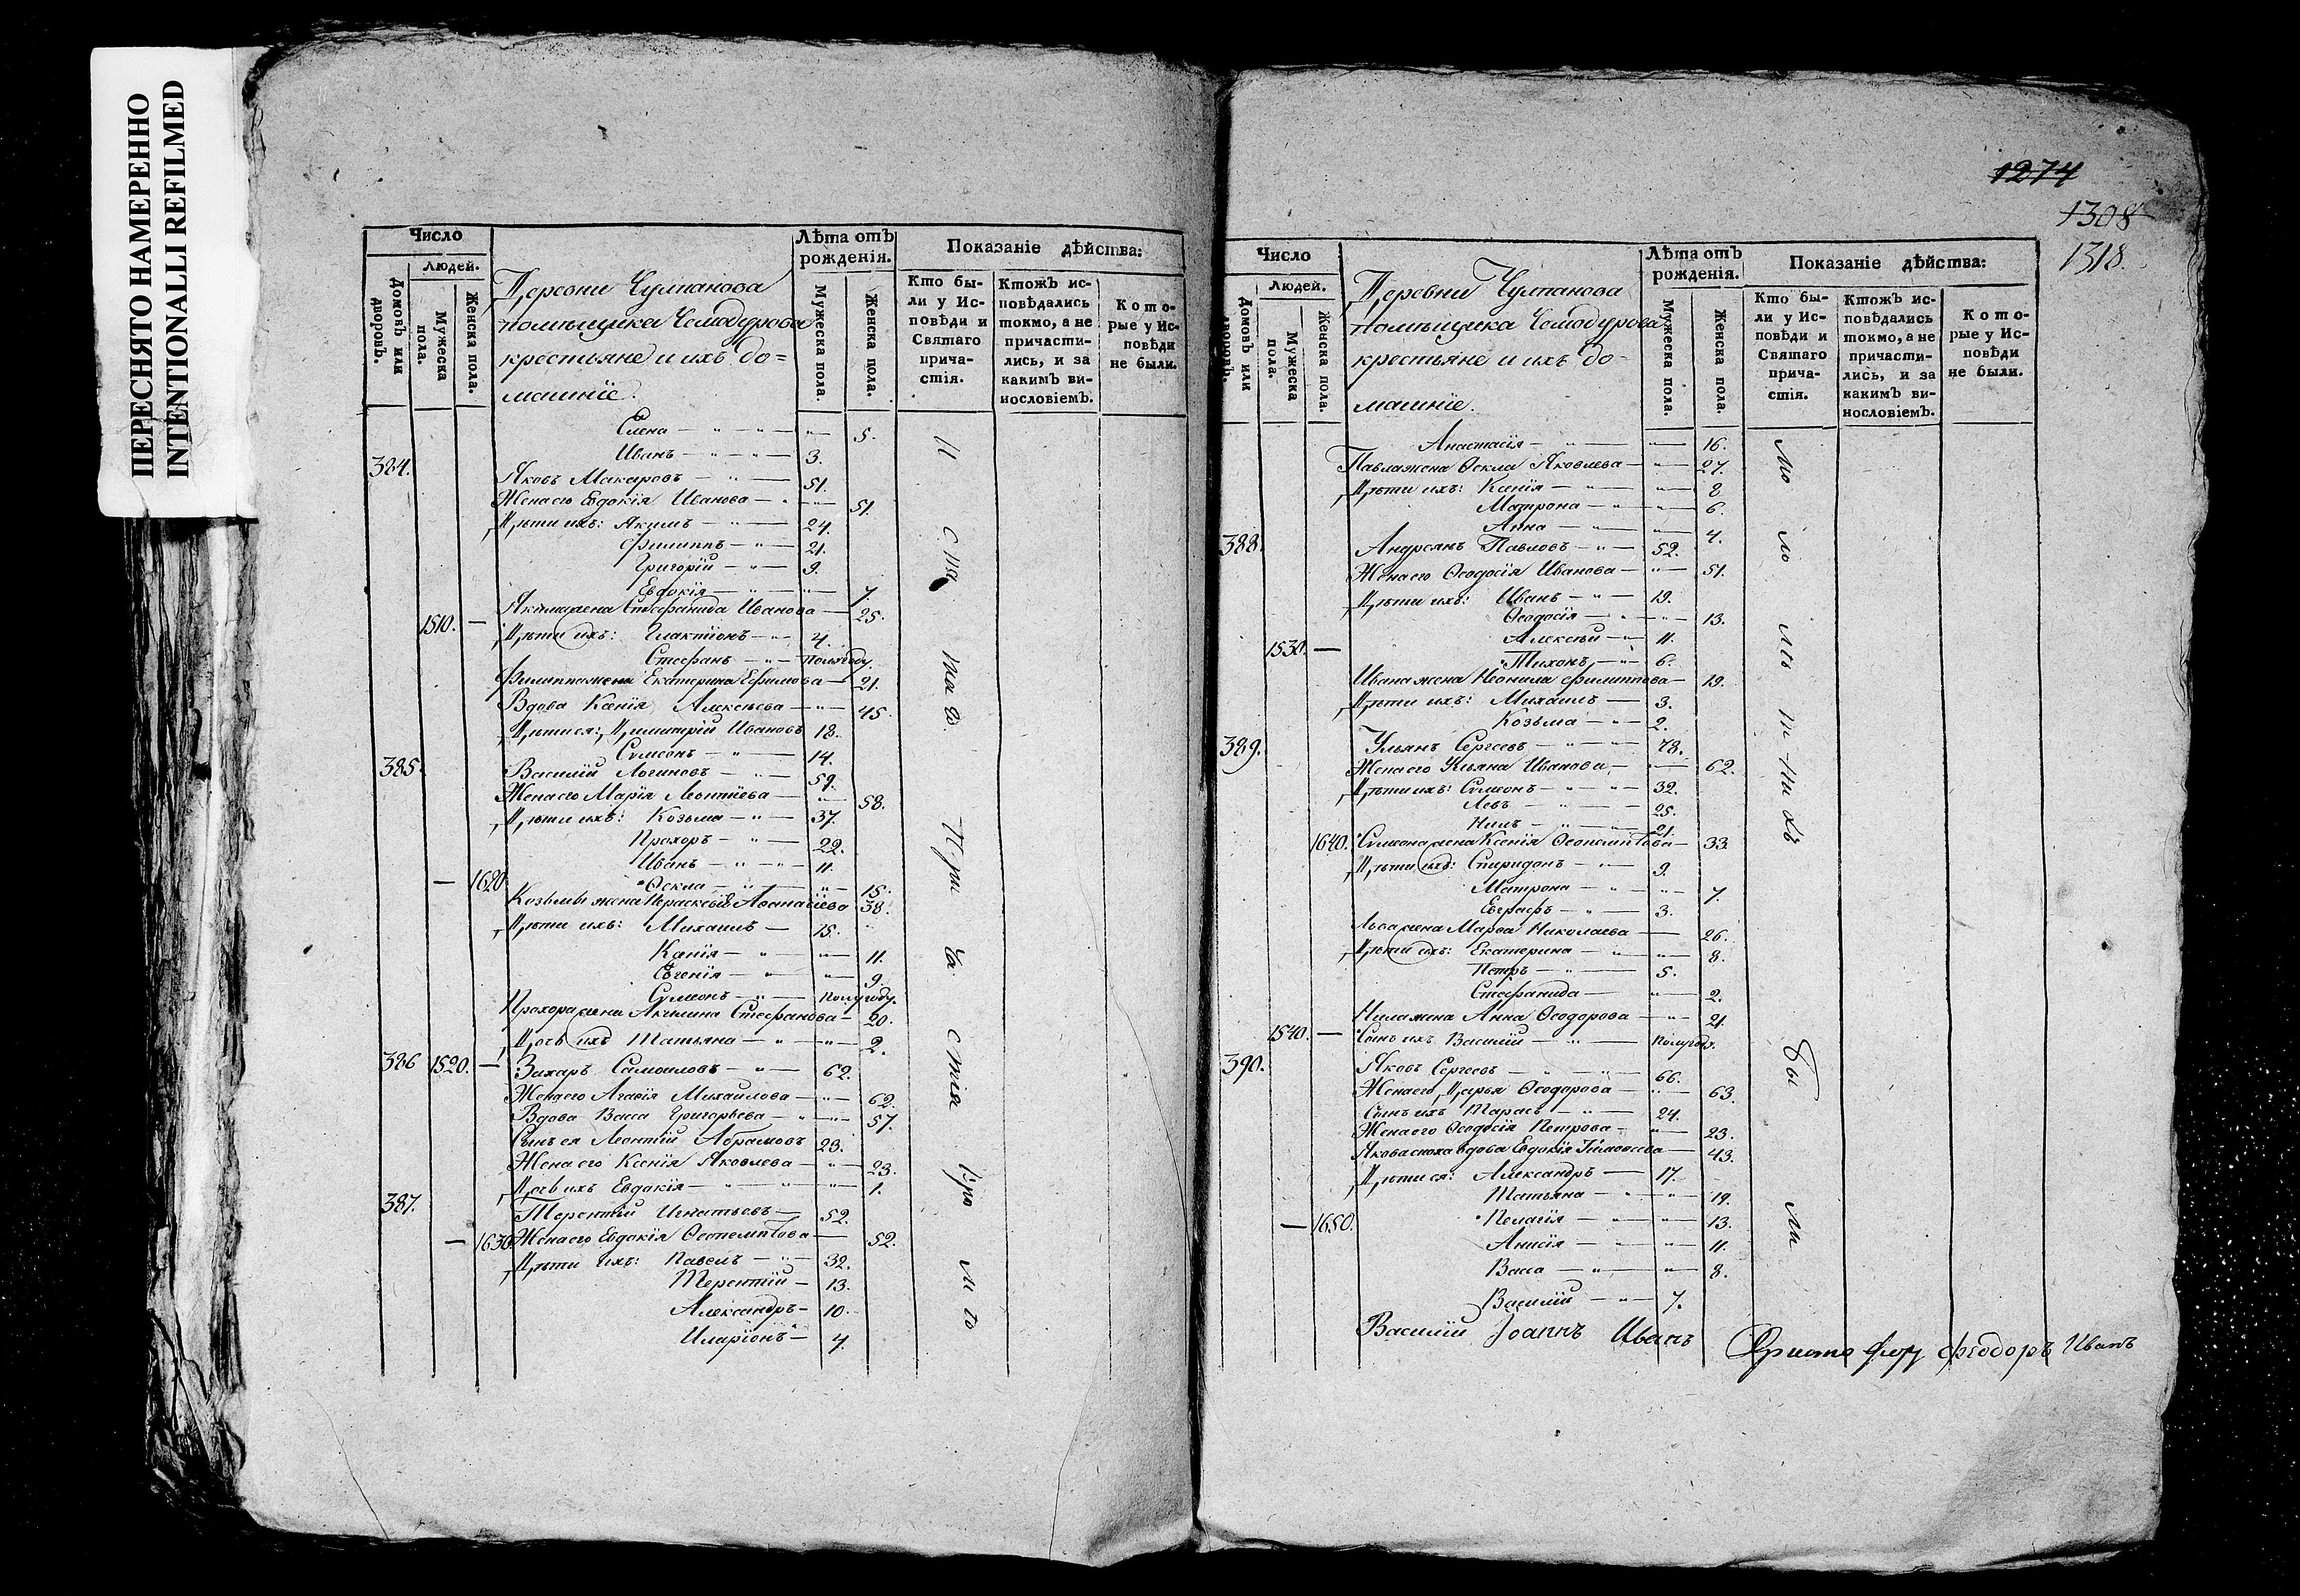 ПЕРЕСНЯТО НАМЕРЕННО
INTENTIONALLI REFILMED
Число
Людей.
Домовъ или дворовъ.
Мужеска пола.
Женска пола.
Деревни Чулпанова
помѣщика Чемодурова
крестьяне и ихъ до=
машніе.
Лѣта отъ рожденія.
Мужеска пола.
Женска пола.
Показаніе дѣйства:
Кто бы-
ли у Ис-
повѣди и
Святаго
прича-
стія.
Ктожъ ис-
повѣдались
токмо, а не
причасти-
лись, и за
какимъ ви-
нословіемъ.
Кото-
рые у Ис-
повѣди
не были.
Елена — " — " — 5.
Иванъ — " — " — 3.
384. Яковъ Макаровъ — " — 51.
Жена его Евдокія Иванова — " — 51.
Дѣти ихъ: Якимъ — " — 24.
Филиппъ — " — 21.
Григорій — " — 9.
Евдокія — " — 7.
Якима жена Стефанида Иванова — 25.
1510. — Дѣти ихъ: Глактіонъ — " — 4.
Стефанъ — " — полугоду.
Филиппа жена Екатерина Ефимова — 21.
Вдова Ксенія Алексѣева — " — 45.
Дѣти ея: Димитрій Ивановъ 18.
Сѵмеонъ — " — 14.
385. Василій Логиновъ — " — 59.
Жена его Марія Леонтіева — " — 58.
Дѣти ихъ: Козьма — " — 37.
Прохоръ — " — 22.
Иванъ — " — " — 11.
— 1620. Ѳекла — " — " — 15.
Козьмы жена Параскевія Аѳанасіева 38.
Дѣти ихъ: Михаилъ — 15.
Ксенія — " — " — 11.
Евгенія — " — " — 9.
Сѵмеонъ — " — полугоду.
Прохора жена Акилина Стефанова — 20.
Дочь ихъ Татьяна — " — " — 2.
386 1520. — Захаръ Самоиловъ — " — 62.
Жена его Агаѳія Михайлова — " — 62.
Вдова Васса Григорьева — " — " — 57.
Сынъ ея Леонтій Абрамовъ 23.
Жена его Ксенія Яковлева — " — 23.
Дочь ихъ Евдокія — " — " — " — 1.
387. Терентій Игнатьевъ — 52.
— 1630 Жена его Евдокія Ѳеопемптова — 52.
Дѣти ихъ: Павелъ — " — 32.
Терентій — 13.
Александръ — 10.
Иларіонъ — 4.
И
спо
вѣ
При
ча
стія
1274
1308
1318.
Число
Людей.
Домовъ или дворовъ.
Мужеска пола.
Женска пола.
Деревни Чулпанова
помѣщика Чемодурова
крестьяне и ихъ до-
машніе.
Лѣта отъ рожденія.
Мужеска пола.
Женска пола.
Показаніе дѣйства:
Кто бы-
ли у Ис-
повѣди и
Святаго
прича-
стія.
Ктожъ ис-
повѣдались
токмо, а не
причасти-
лись, и за
какимъ ви-
нословіемъ.
Кото-
рые у Ис-
повѣди
не были.
Анастасія — " — " — 16.
Павла жена Ѳекла Яковлева — " — 27.
Дѣти ихъ: Ксенія — " — " — 8
Матрона — " — " — 6.
Анна — " — " — 4.
388. Андреянъ Павловъ — " — 52.
Жена его Ѳеодосія Иванова — " — 51.
Дѣти ихъ: Иванъ — " — 19.
Ѳеодосія — " — " — 13.
Алексѣй — " — 11.
1530. — Тихонъ — " — 6.
Ивана жена Неонила Филиппова — 19.
Дѣти ихъ: Михаилъ — 3.
Козьма — " — 2.
389. Ульянъ Сергеевъ — " — " — 78.
Жена его Ульяна Иванова — " — 62.
Дѣти ихъ: Сѵмеонъ — " — " — 32.
Левъ — " — 25.
Нилъ — " — " — 21.
1640. Сѵмеона жена Ксенія Ѳеопемптова — 33
Дѣти ихъ: Спиридонъ — " — 9.
Матрона — " — " — 7.
Евграфъ — " — 3.
Льва жена Марѳа Николаева — 26.
Дѣти ихъ: Екатерина — " — " — 8.
Петръ — " — 5.
Стефанида — " — 2.
Нила жена Анна Ѳеодорова — " — 21.
1540. — Сынъ ихъ Василій — " — полугоду.
390. Яковъ Сергеевъ — " — " — 66.
Жена его Дарья Ѳеодорова — " — 63.
Сынъ ихъ Тарасъ — " — 24.
Жена его Ѳеодосія Петрова — " — 23.
Якова сноха вдова Евдокія Тимоѳеева — 43.
Дѣти ея: Александръ — 17.
Татьяна — " — " — 19.
— 1650. Пелагія — " — " — 13.
Анисія — " — " — 11.
Васса — " — " — 8.
Василій — " — 7.
бы
ли
Василій Іоаннъ Иванъ
Ѳеодоръ Иванъ